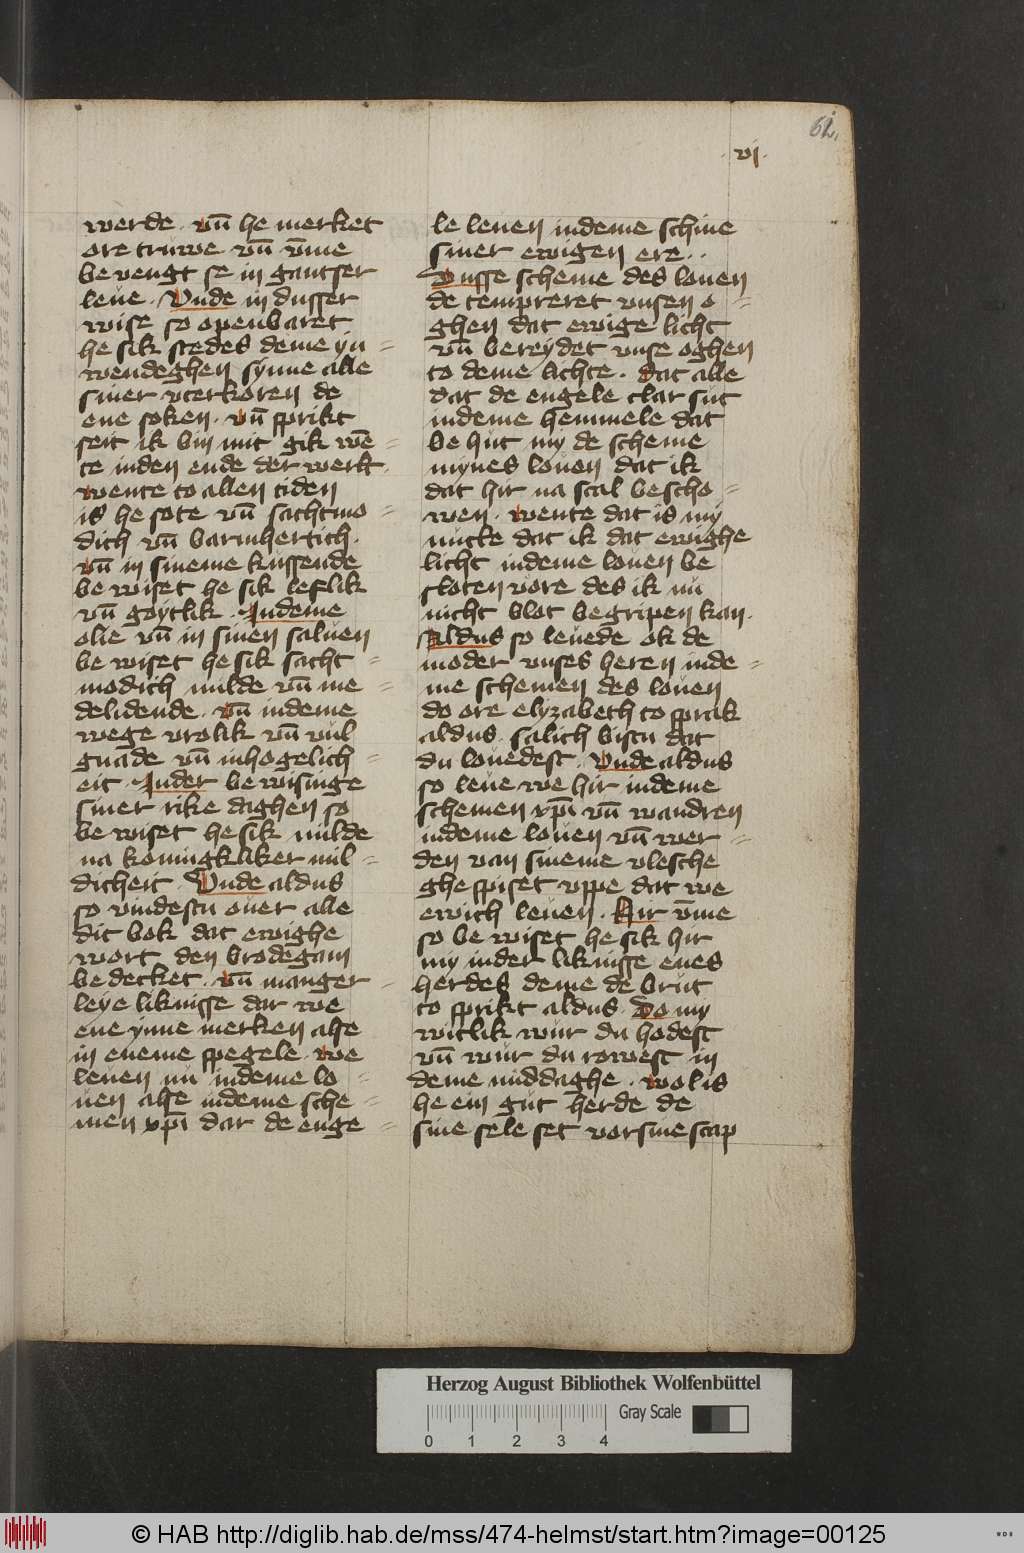 61.
·vj·
werde · vn̄ he merket
ore truwe vn̄ v̄me
be vengt se in gantser
leue · Vnde in dusser
wise so openbaret
he sik stedes deme yn=
wendeghen synne alle
siner vterkoren de
ene soken · vn̄ sprikt
seit ik bin mit gik wē=
te inden ende der werlt·
wente to allen tiden
is he sote vn̄ sachtmo=
dich vn̄ barmhertich·
vn̄ in sineme kussende
be wiset he sik leflik
vn̄ goytlik · Indeme
olie vn̄ in sinen saluen
be wiset he sik sacht=
modich milde vn̄ me=
delidende · vn̄ indeme
wege vrolik vn̄ vul
gnade vn̄ inhogelich=
eit · Inder be wisinge
siner rike daghen so
be wiset he sik milde
na koningkliker mil=
dicheit · Vnde aldus
so vindestu ouer alle
dit bok dat ewighe
wort den brodegam
be decket · vn̄ manger=
leye liknisse dar we
ene ynne merken alse
in eneme spegele · we
leuen nu indeme lo=
uen alse indeme sche=
men xp̄i dar de enge=
le leuen indeme schine
siner ewigen ere · ·
Dusse scheme des louen
de tempreret vnsen o=
ghen dat ewige licht
vn̄ bereydet vnse oghen
to deme lichte · dat alle
dat de engele clar sut
indeme hemmele dat
be hut my de scheme
mynes louen dat ik
dat hir na scal bescho=
wen · wente dat is my
nutte dat ik dat ewighe
licht indeme louen be
sloten vore des ik nu
nicht blot begripen kan·
Aldus so leuede ok de
moder vnses heren inde=
me schemen des louen
do ore elyzabeth to sprak
aldus · salich bistu dat
du louedest · Vnde aldus
so leue we hir indeme
schemen xp̄i vn̄ wandren
indeme louen vn̄ wer=
den van sineme vlesche
ghe spiset vppe dat we
ewich leuen · Hir v̄me
so be wiset he sik hir
my inder liknisse enes
herdes deme de brut
to sprikt aldus · Do my
witlik wur du hodest
vn̄ wur du rowest in
deme middaghe · wol is
he ein gut herde de
sine sele set vor sine scap
Herzog August Bibliothek Wolfenbüttel
Gray Scale
0 1 2 3 4
© HAB http://diglib.hab.de/mss/474-helmst/start.htm?image=00125